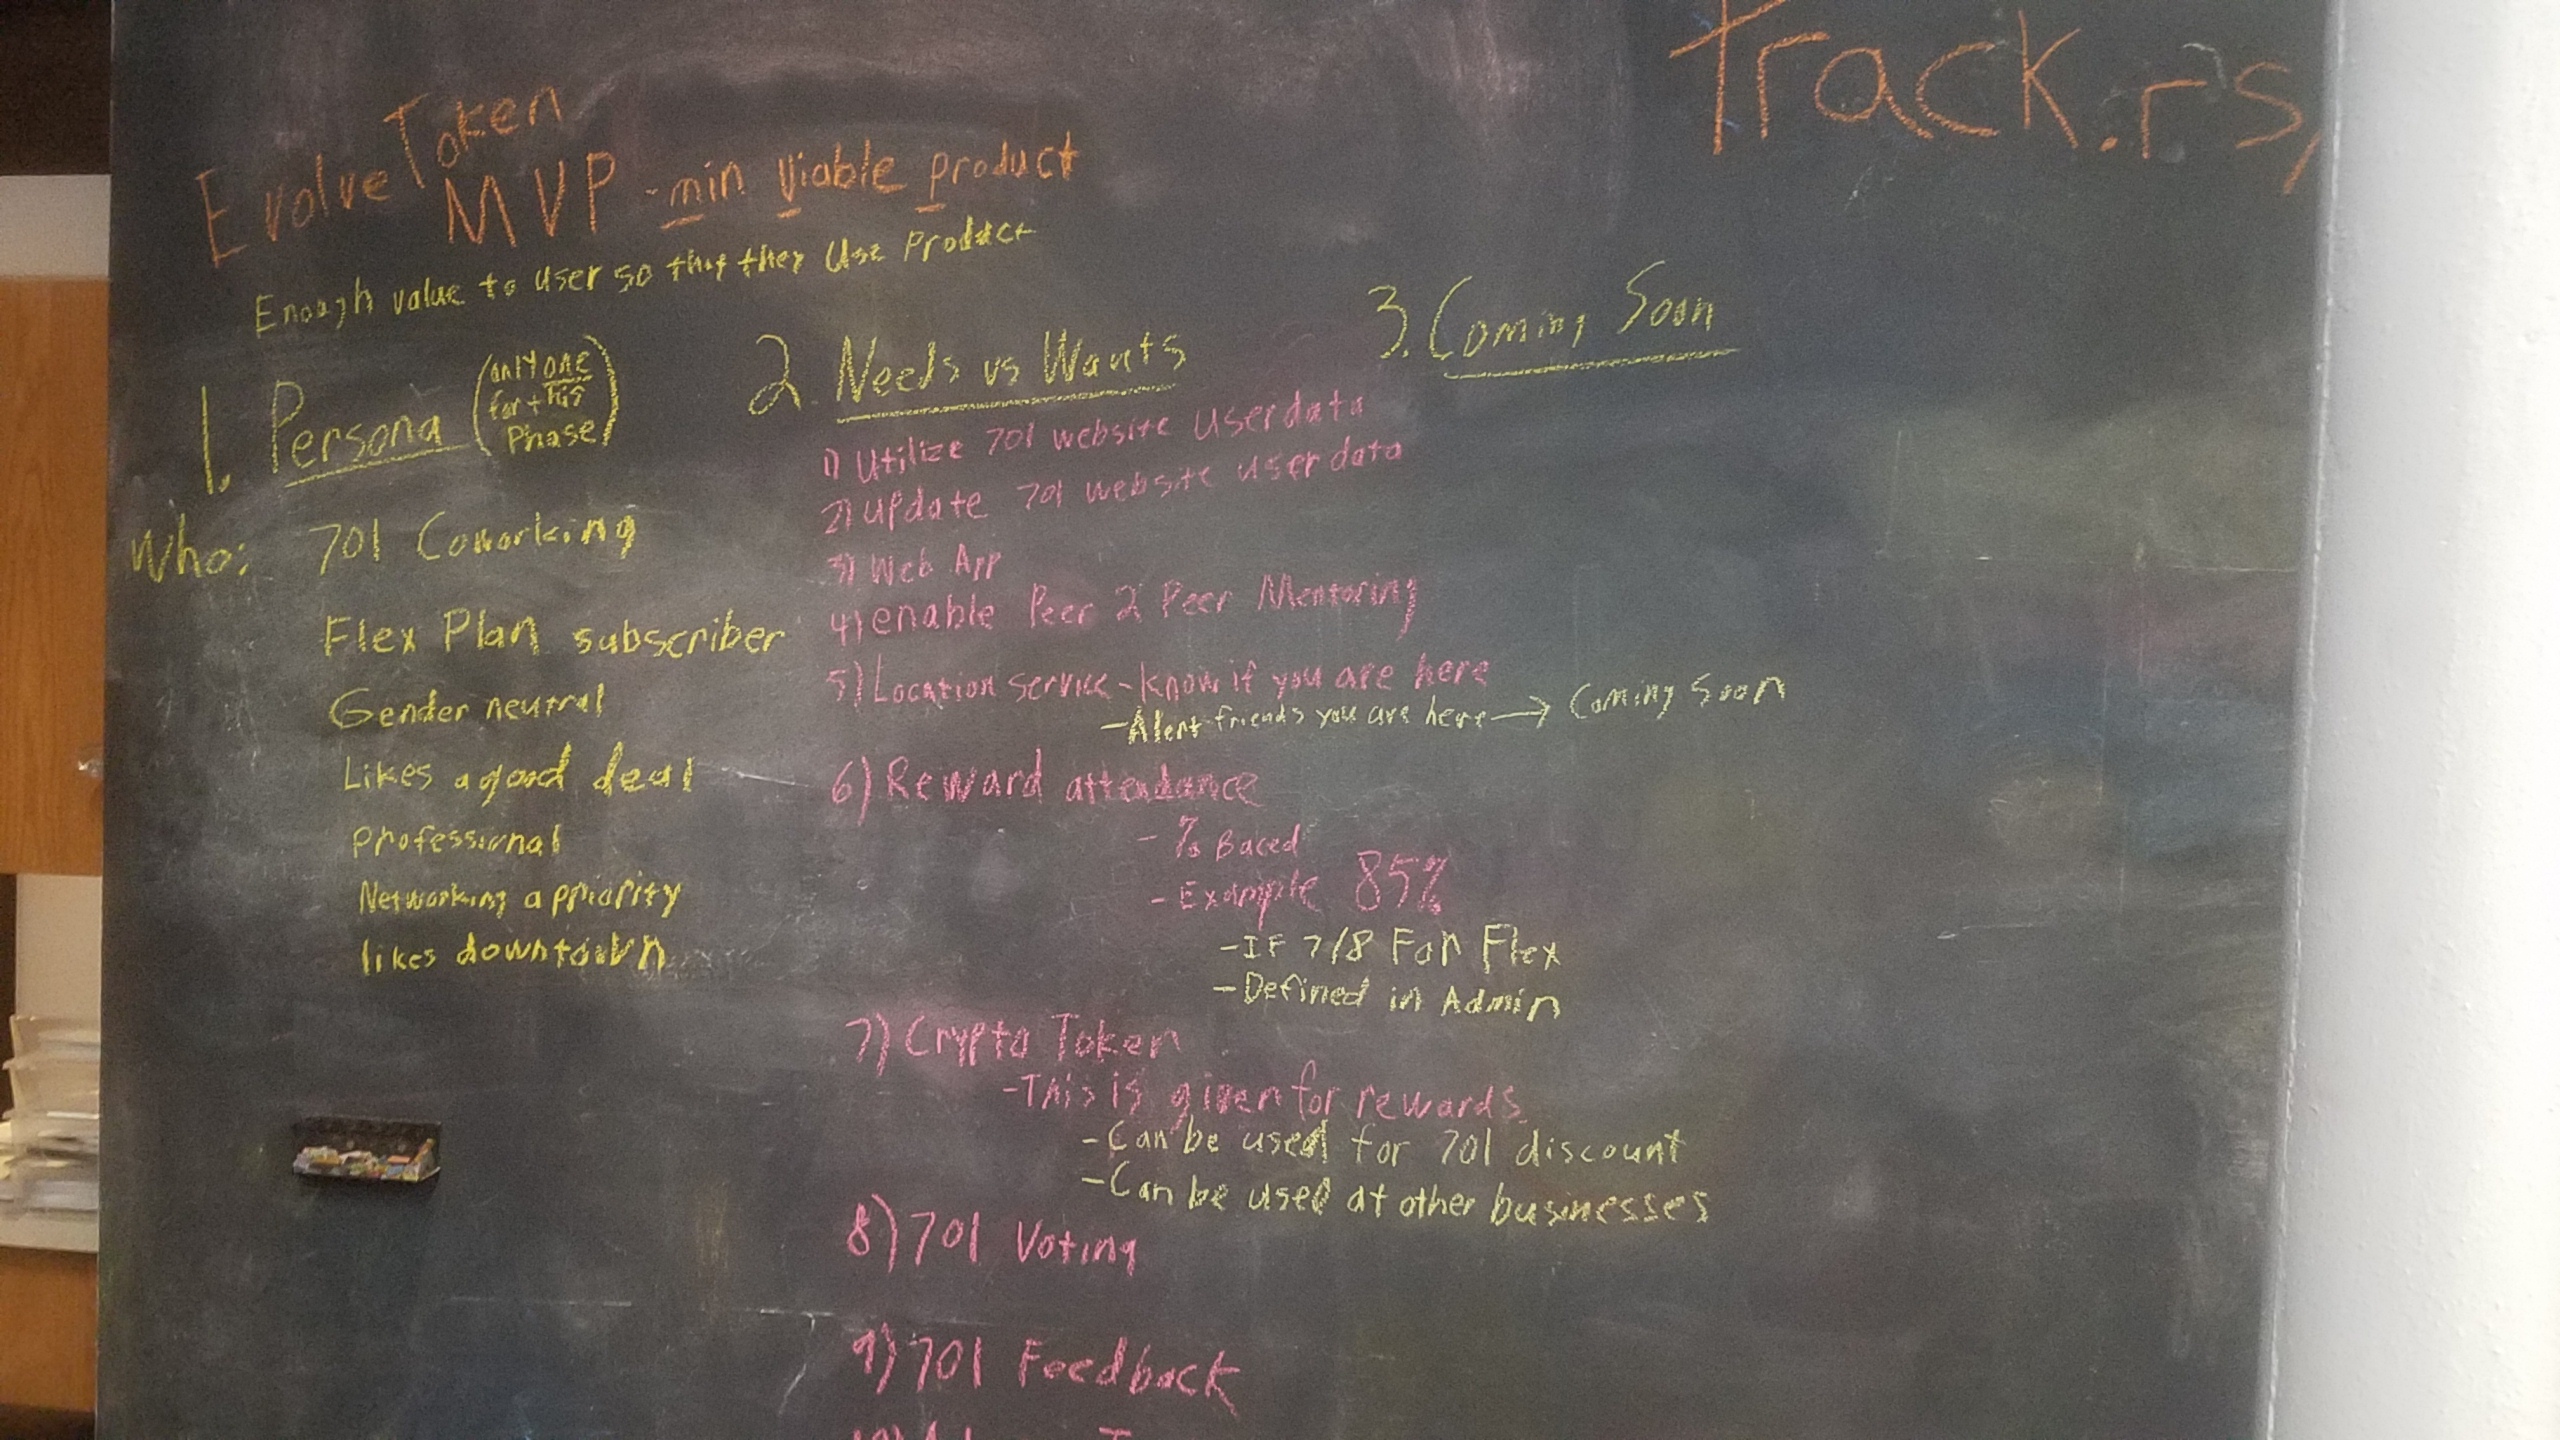 Track.rs,
Evolve Token
MVP - min viable product
Enough value to user so that they Use Product
1. Persona (only one for this Phase)
Who: 701 Coworking
Flex Plan subscriber
Gender neutral
Likes a good deal
Professional
Networking a priority
likes downtown
2. Needs vs Wants
1) Utilize 701 website user data
2) Update 701 website user data
3) Web App
4) enable Peer 2 Peer Mentoring
5) Location service - know if you are here
- Alert friends you are here → Coming Soon
6) Reward attendance
- % Baced
- Example 85%
- IF 7/8 For Flex
- Defined in Admin
7) Crypto Token
- This is given for rewards
- Can be used for 701 discount
- Can be used at other businesses
8) 701 Voting
9) 701 Feedback
3. Coming Soon